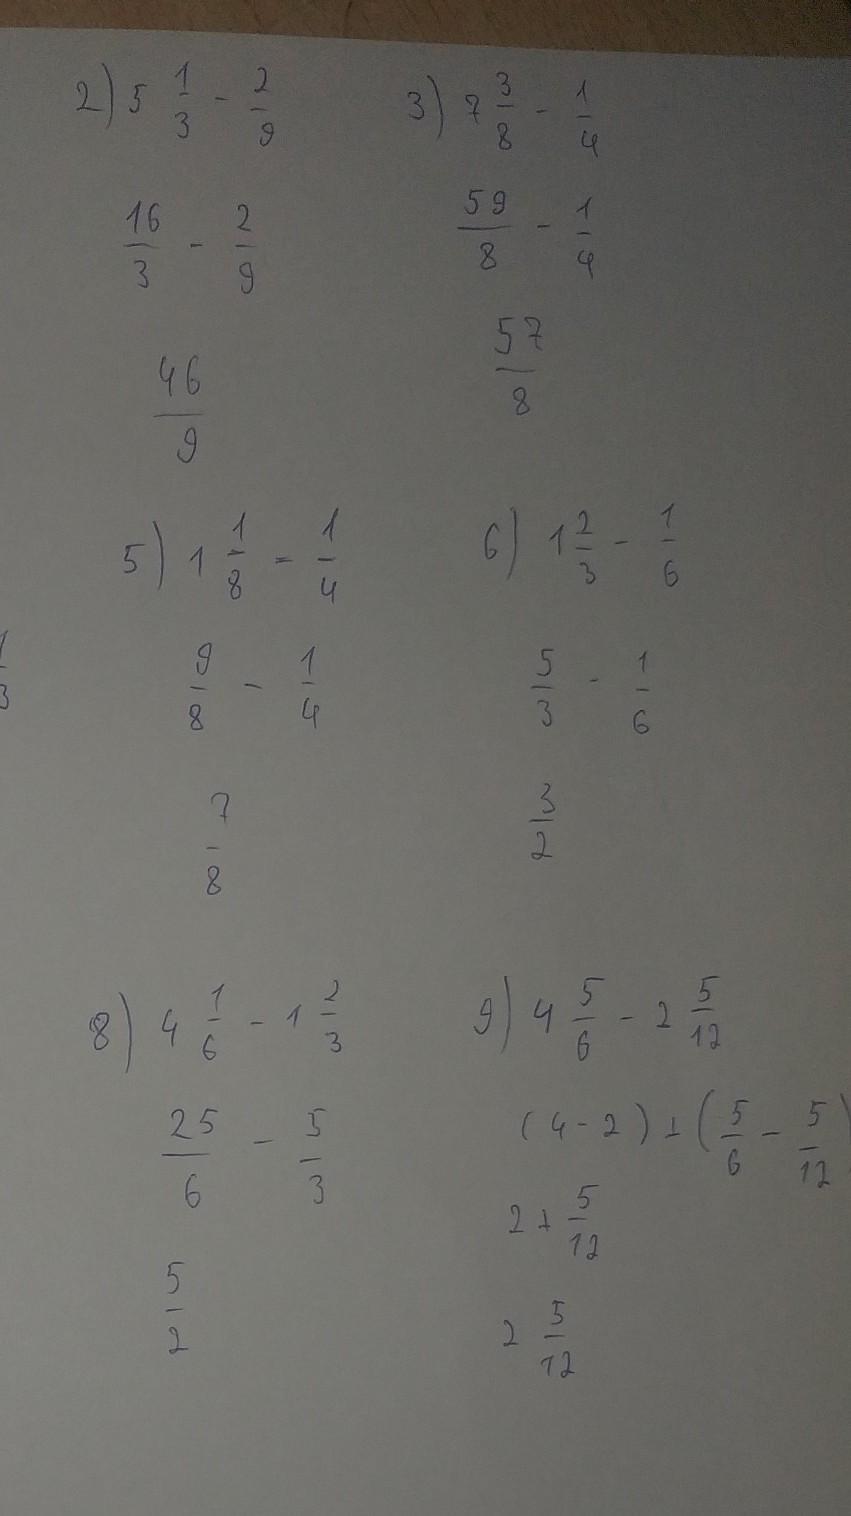 2) 5 1/3 - 2/9
16/3 - 2/9
46/9
3) 7 3/8 - 1/4
59/8 - 1/4
57/8
5) 1 1/8 - 1/4
9/8 - 1/4
7/8
6) 1 2/3 - 1/6
5/3 - 1/6
3/2
1/3
8) 4 1/6 - 1 2/3
25/6 - 5/3
5/2
9) 4 5/6 - 2 5/12
(4 - 2) + (5/6 - 5/12)
2 + 5/12
2 5/12